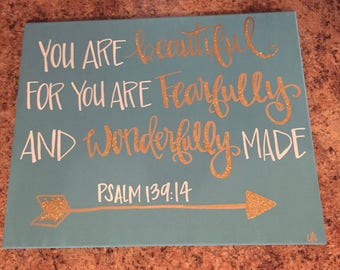 YOU ARE beautiful
FOR YOU ARE Fearfully
AND Wonderfully MADE
PSALM 139:14